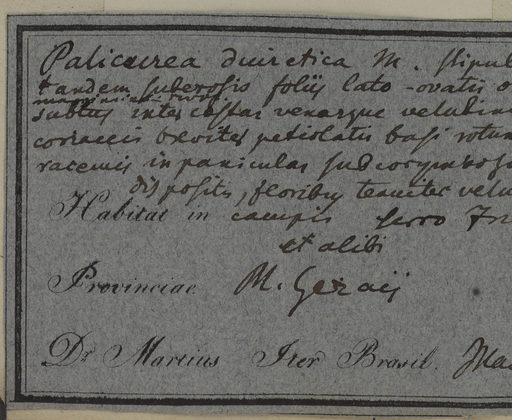 Palicurea diuretica M. stipul
tandem suberosis foliis lato-ovatis o
subtus inter costas venasque velutin
coriaceis breviter petiolatis basi rotun
racemis in paniculas subcorymbosa
dispositis, floribus tenuiter velu
Habitat in campis Serro Fri
et alibi
Provinciae M. Geraës
Dr Martius Iter Brasil. Ma